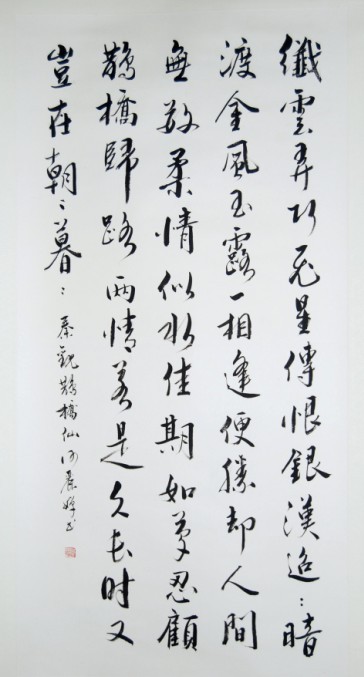 纖雲弄巧飛星傳恨銀漢迢〻暗
渡金風玉露一相逢便勝却人間
無數柔情似水佳期如夢忍顧
鵲橋歸路兩情若是久長时又
豈在朝〻暮〻
秦觀鵲橋仙